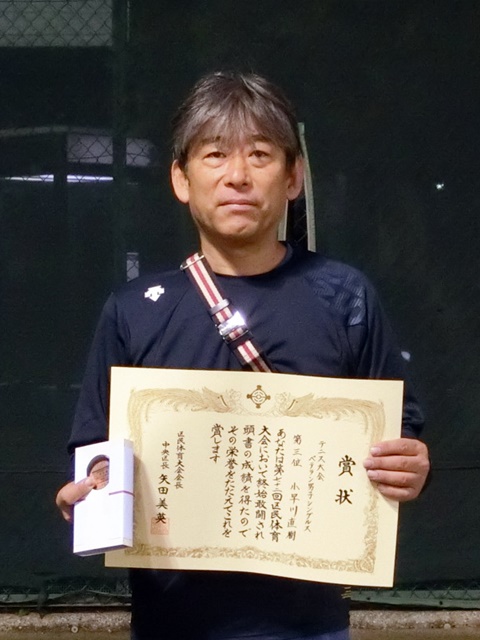 賞状
テニス大会
ベテラン男子シングルス
第三位 小早川直樹
あなたは第七十二回区民体育
大会において終始敢闘され
頭書の成績を得たので
その栄誉をたたえてこれを
賞します
区民体育大会会長
中央区長 矢田美英